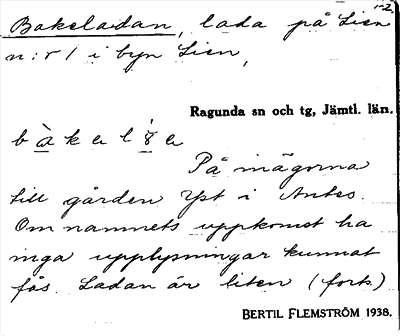 1-2.
Bakeladan, lada på Lien
n:r 1 i byn Lien,
Ragunda sn och tg, Jämtl. län.
På inägorna
till gården Yst i Antes.
Om namnets uppkomst ha
inga upplysningar kunnat
fås. Ladan är liten (forts.)
BERTIL FLEMSTRÖM 1938.